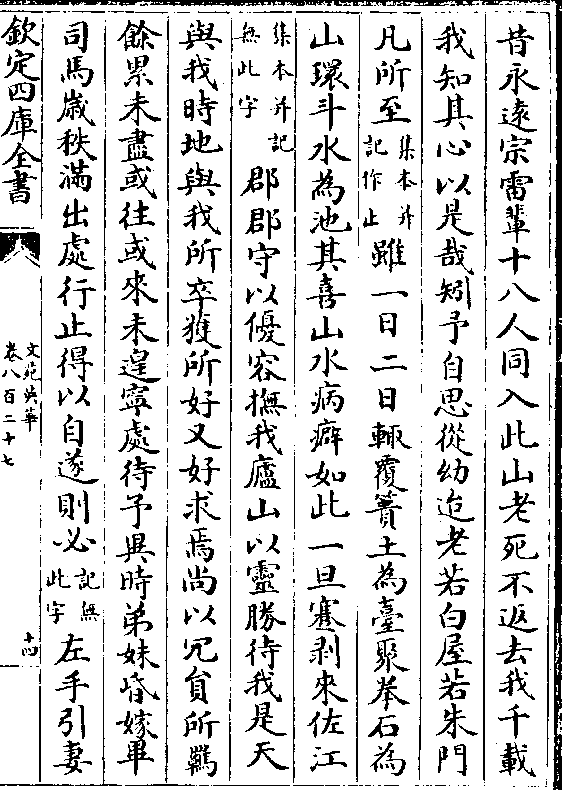 昔永遠宗雷輩十八人同入此山老死不返去我千載
我知其心以是哉矧予自思從幼迨老若白屋若朱門
凡所至集本并記作止雖一日二日輙覆簣土為臺聚拳石為
山環斗水為池其喜山水病癖如此一旦蹇剥來佐江
集本并記無此字郡郡守以優容撫我廬山以靈勝待我是天
與我時地與我所卒獲所好又好求焉尚以冗員所羈
餘累未盡或往或來未遑寧處待予異時弟妹㛰嫁畢
司馬嵗秩滿出處行止得以自遂則必記無此字左手引妻
欽定四庫全書
文苑英華
卷八百二十七
十四